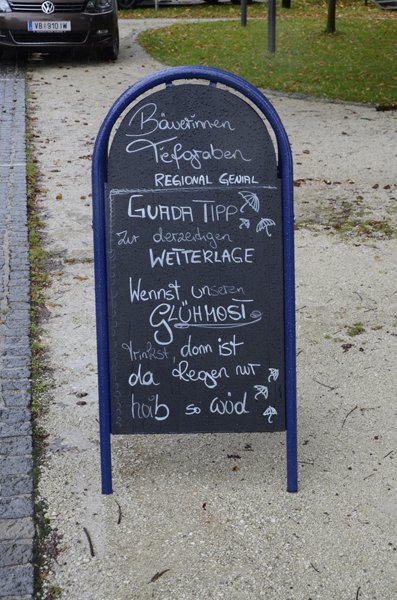 VB 910 IW
Bäuerinnen
Tiefgraben
REGIONAL GENIAL
GUADA TIPP
zur derzeitigen
WETTERLAGE
Wennst unseren
GLÜHMOST
trinkst, dann ist
da Regen nur
hoib so wüd